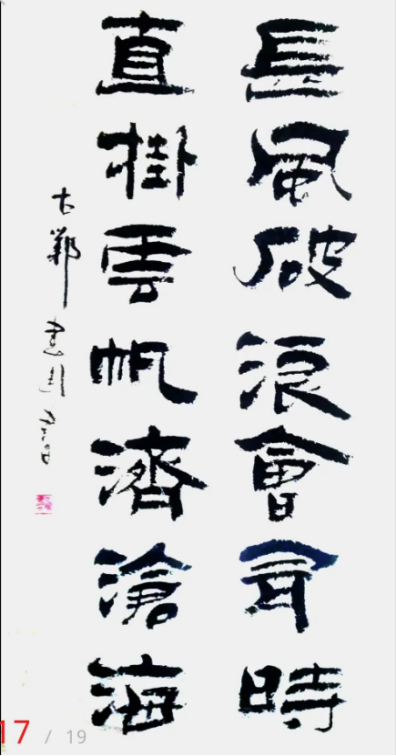 長風破浪會有時
直掛雲帆濟滄海
17 / 19